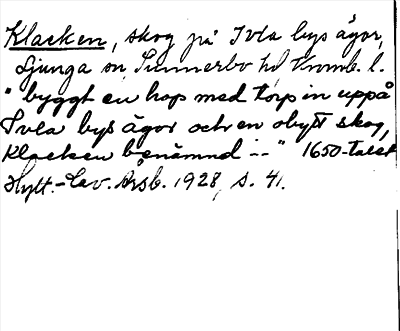 Klacken, skog på Ivla bys ägor,
Ljunga sn, Sunnerbo hd Kronob. l.
"byggt en hop med torp in uppå
Ivla bys ägor och en obyst skog,
Klacken benämnd --" 1650-talet
Hylt.-Cav. Årsb. 1928, s. 41.